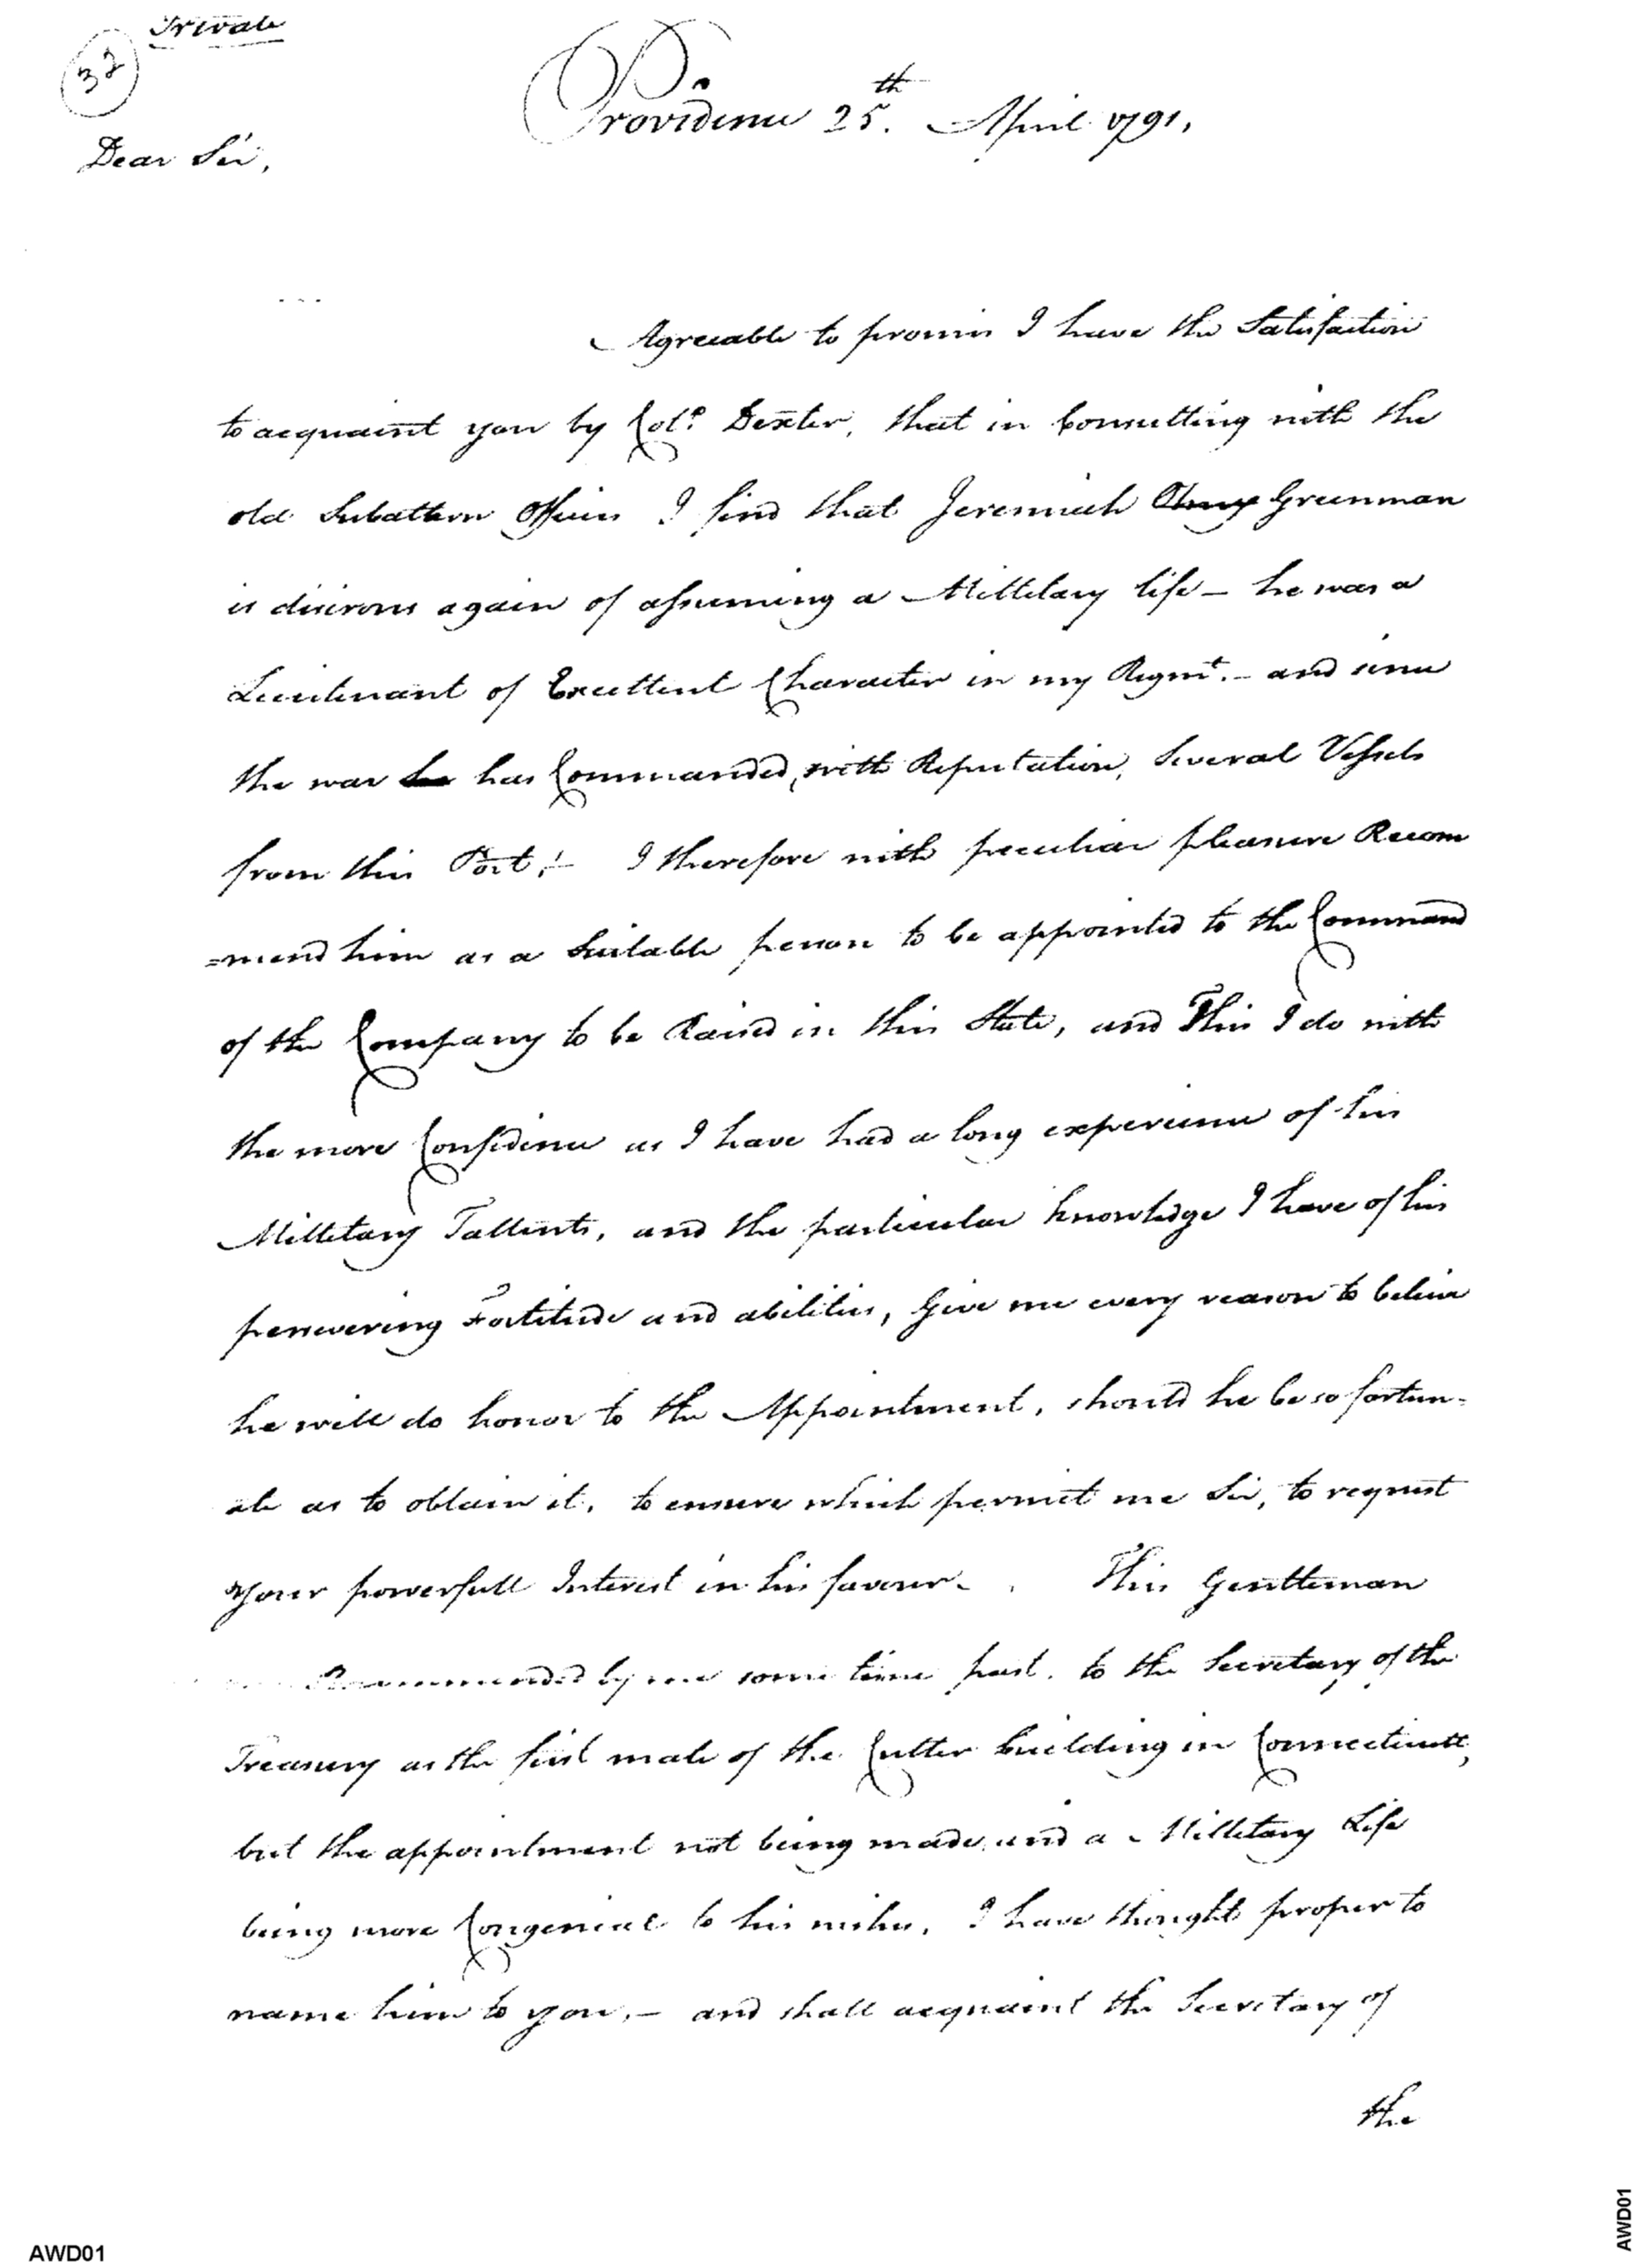 Private
32
Providence 25th. April 1791,
Dear Sir,
Agreeable to promise I have the Satisfaction
to acquaint you by Colo. Dexter, that in Consulting with the
old Subaltern Officers I find that Jeremiah Greenman
is desirous again of assuming a Milletary life – he was a
Lieutenant of Excellent Character in my Regmt. – and since
the war has Commanded, with Reputation, Several Vessels
from this Port, – I therefore with peculiar pleasure Recom
=mend him as a Suitable person to be appointed to the Command
of the Company to be Raised in this State, and This I do with
the more Confidence as I have had a long experience of his
Milletary Tallents, and the particular knowledge I have of his
persevering Fortitude and abilities, Give me every reason to believe
he will do honor to the Appointment, should he be so fortun-
ate as to obtain it, to ensure which permit me Sir, to request
Your powerfull Interest in his favour. This Gentleman
Recommended by me some time past, to the Secretary of the
Treasury as the first mate of the Cutter building in Connecticutt,
but the appointment not being made, and a Milletary Life
being more Congenial to his wishes, I have thought proper to
name him to you, – and shall acquaint the Secretary of
the
AWD01
AWD01